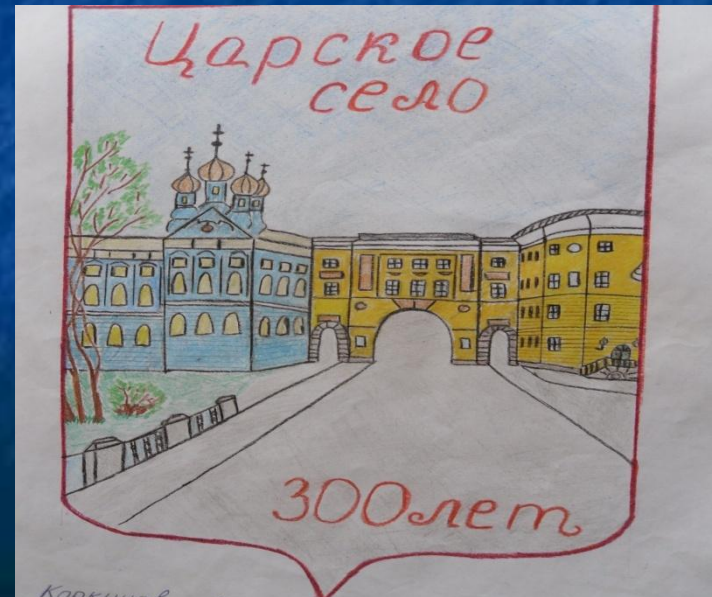 Царское
село
300лет